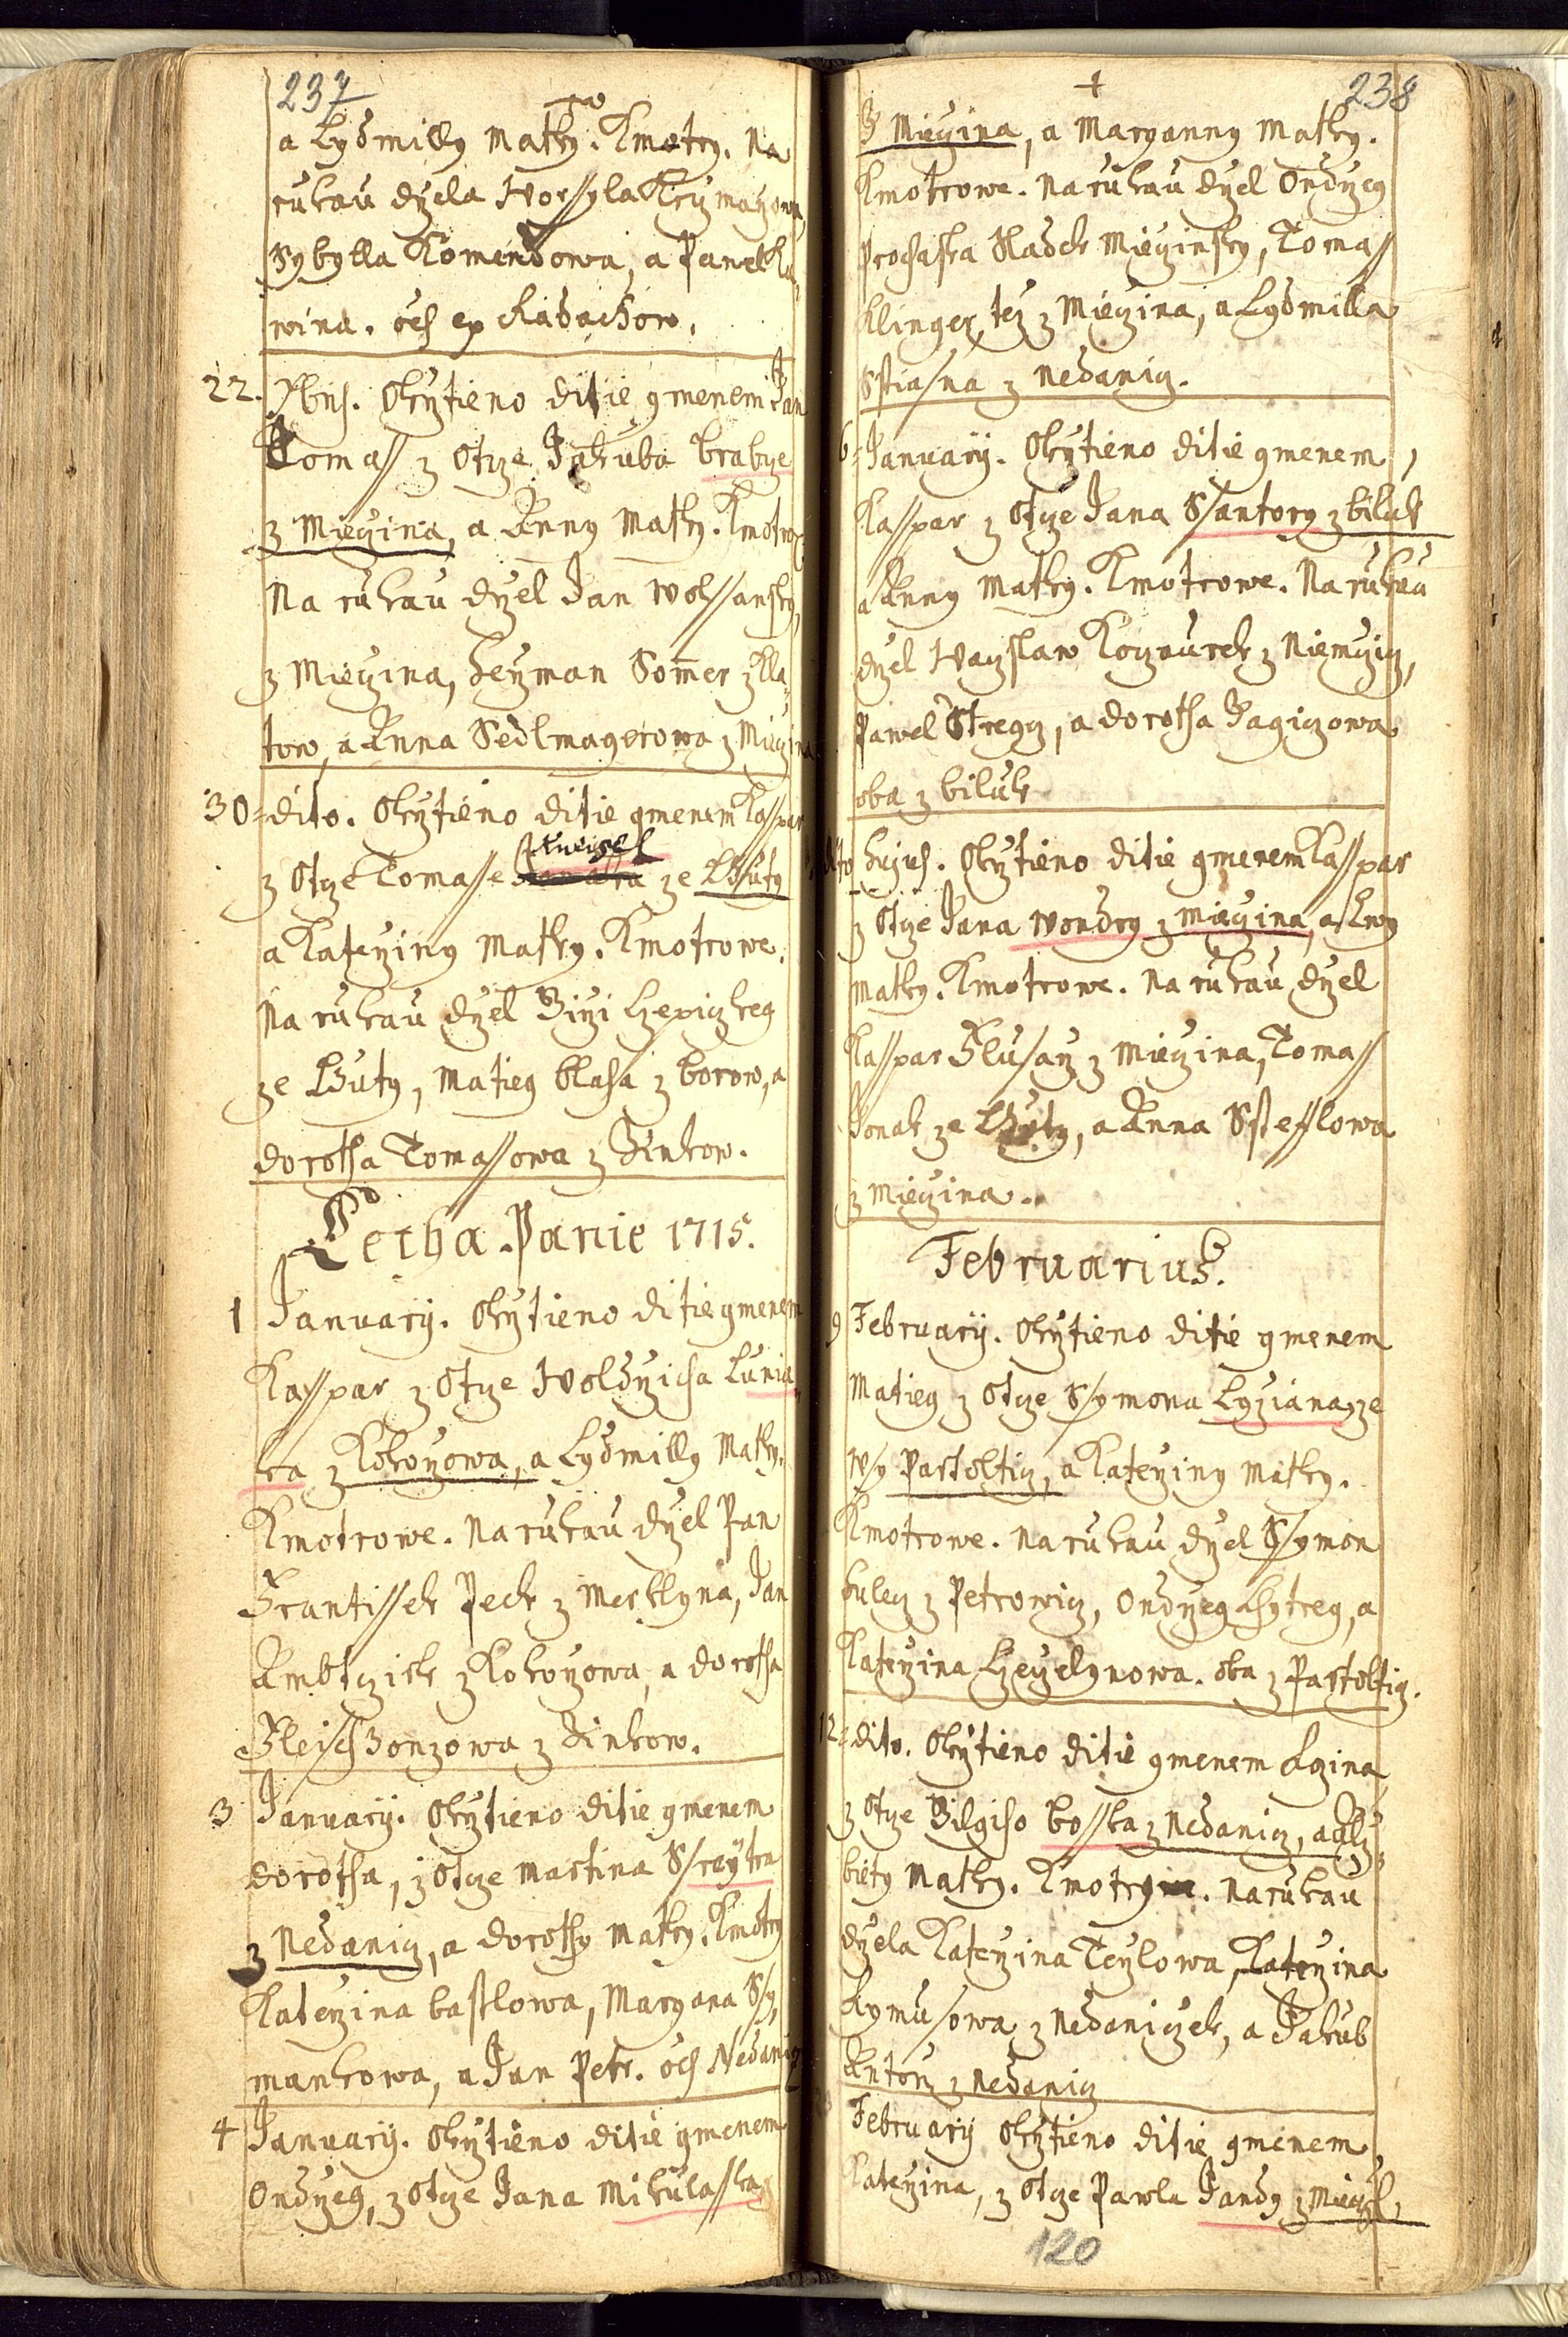 237
a Lydmilly Matky. Kmotry. Na
rukau drzela Worssyla Krzmarzowa,
Sybylla Komendowa, a Pawel Ka-
wina. oēs ex Radachow.
22. Xbris. Okrztieno ditie gmenem Jan
Tomass z Otcze Jakuba brabcze
z Mieczina, a Anny Matky. Kmotrowe
Na rukau drzel Jan Wolssansky,
z Mieczina, heyman Som̄er z Kla-
tow, a Anna Sedlmayerowa z Mieczina
30 = dito. Okrztieno ditie gmenem Kasspar
Kneisel
z Otcze Tomasse ze Lhuty
a Katerziny Matky. Kmotrowe.
Na rukau drzel Girzi Czepiczkeg
ze Lhuty, Matieg blaha z borow, a
dorotha Tomassowa z Zinkow.
Letha Panie 1715.
1 Januarij. Okrztieno ditie gmenem
Kasspar z Otcze Woldrzicha Lunia-
ka z Kokorzowa, a Lydmilly Matky.
Kmotrowe. Na rukau drzel Pan
Frantissek Peck z Merklyna, Jan
Ambrczick z Kokorzowa, a dorotha
Fleischhonzowa z Zinkow.
3 Januarij. Okrztieno ditie gmenem
dorotha, z Otcze Martina Ssreytra
z Nedanicz, a dorothy Matky. Kmotry
Katerzina bastlowa, Maryana Ssy-
mankowa, a Jan Petr. oēs Nedanicz
4 Januarij. Okrztieno ditie gmenem
Ondrzeg, z Otcze Jana Mikulasska
+
238
Z Mieczina, a Maryanny Matky.
Kmotrowe. Na rukau drzel Ondrzeg
Prochaska Sladek Mieczinsky, Tomass
Klinger, tez z Mieczina, a Lydmilla
Sstiasna z Nedanicz.
6 = Januarij. Okrztieno ditie gmenem,
Kasspar z Otcze Jana Ssantory z biluk
a Anny Matky. Kmotrowe. Na rukau
drzel Waczlaw Koczaurek z Niemczicz,
Pawel Stregcz, a dorotha Jagiczowa
oba z biluk
dito hujus. Okrztieno ditie gmenem Kasspar
z Otcze Jana Wondry z Mieczina, a Ewy
Matky. Kmotrowe. Na rukau drzel
Kasspar Hlusacz z Mieczina, Tomass
Jonak ze Lhuty, a Anna Sstefflowa
z Mieczina.
Februarius.
9 Februarij. Okrztieno ditie gmenem
Matieg z Otcze Ssymona Lyziana, ze
Wsy Partolticz, a Katerziny Matky.
Kmotrowe. Na rukau drzel Ssymon
huley z Petrowicz, Ondrzeg Chytreg, a
Katerzina Czeyelynowa. oba z Partolticz.
12 = dito. Okrztieno ditie gmenem Regina
z Otcze Gilgiho bosska z Nedanicz, a Alz-
biety Matky. Kmotry. Na rukau
drzela Katerzina Teylowa, Katerzina
Rymussowa z Nedaniczek, a Jakub
Anton z Nedanicz
Februarij Okrztieno ditie gmenem
Katerzina, z Otcze Pawla Jandy z Mieczi-
120